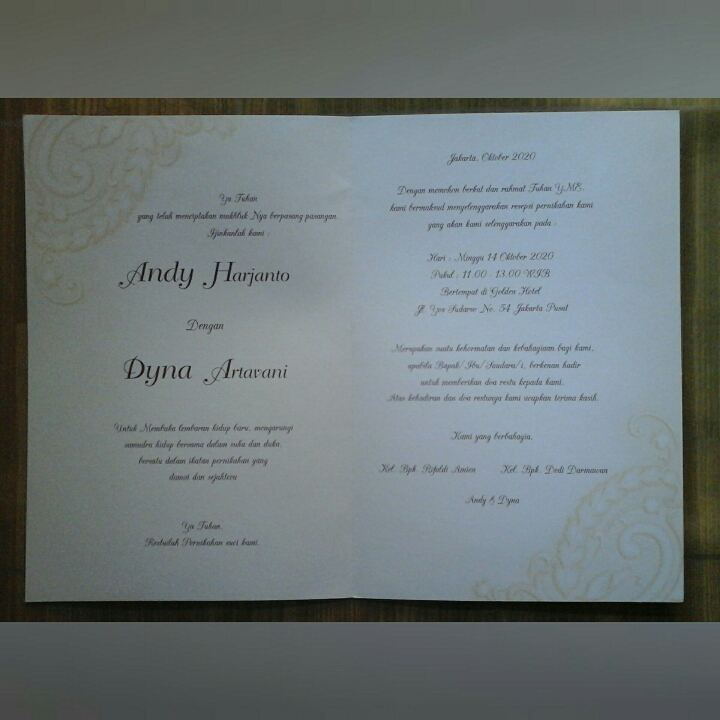 Ya Tuhan
yang telah menciptakan makhluk Nya berpasang pasangan
Ijinkanlah kami :
Andy Harjanto
Dengan
Dyna Artavani
Untuk Membuka lembaran hidup baru, mengarungi
samudra hidup bersama dalam suka dan duka,
bersatu dalam ikatan pernikahan yang
damai dan sejahtera
Ya Tuhan,
Restuilah Pernikahan suci kami.
Jakarta, Oktober 2020
Dengan memohon berkat dan rahmat Tuhan YME,
kami bermaksud menyelenggarakan resepsi pernikahan kami
yang akan kami selenggarakan pada :
Hari : Minggu 14 Oktober 2020
Pukul : 11.00 - 13.00 WIB
Bertempat di Golden Hotel
Jl. Yos Sudarso No. 54 Jakarta Pusat
Merupakan suatu kehormatan dan kebahagiaan bagi kami,
apabila Bapak/Ibu/Saudara/i, berkenan hadir
untuk memberikan doa restu kepada kami.
Atas kehadiran dan doa restunya kami ucapkan terima kasih.
Kami yang berbahagia,
Kel. Bpk. Amien Kel. Bpk. Dedi Darmawan
Andy & Dyna